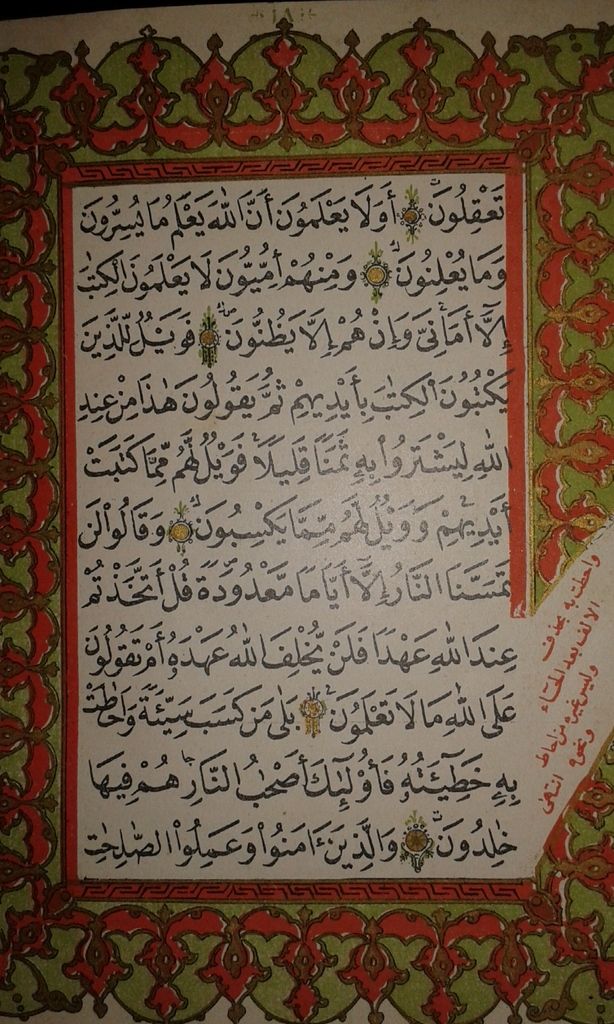 ١٨
تَعْقِلُونَ أَوَلَا يَعْلَمُونَ أَنَّ اللّٰهَ يَعْلَمُ مَا يُسِرُّونَ
وَمَا يُعْلِنُونَ وَمِنْهُمْ أُمِّيُّونَ لَا يَعْلَمُونَ الْكِتٰبَ
إِلَّآ أَمَانِىَّ وَإِنْ هُمْ إِلَّا يَظُنُّونَ فَوَيْلٌ لِّلَّذِينَ
يَكْتُبُونَ الْكِتٰبَ بِأَيْدِيهِمْ ثُمَّ يَقُولُونَ هٰذَا مِنْ عِندِ
اللّٰهِ لِيَشْتَرُوا۟ بِهِ ثَمَنًا قَلِيلًا فَوَيْلٌ لَّهُم مِّمَّا كَتَبَتْ
أَيْدِيهِمْ وَوَيْلٌ لَّهُم مِّمَّا يَكْسِبُونَ وَقَالُوا۟ لَن
تَمَسَّنَا النَّارُ إِلَّآ أَيَّامًا مَّعْدُودَةً قُلْ أَتَّخَذْتُمْ
عِندَ اللّٰهِ عَهْدًا فَلَنْ يُخْلِفَ اللّٰهُ عَهْدَهُ أَمْ تَقُولُونَ
عَلَى اللّٰهِ مَا لَا تَعْلَمُونَ بَلَى مَن كَسَبَ سَيِّئَةً وَأَحٰطَتْ
بِهِ خَطِيٓئَتُهُ فَأُو۟لٰٓئِكَ أَصْحٰبُ النَّارِ هُمْ فِيهَا
خٰلِدُونَ وَالَّذِينَ ءَامَنُوا۟ وَعَمِلُوا۟ الصّٰلِحٰتِ
واحطت به بحذف
الالف بعد الحاء
وليس غيره من احاط
ونحوه انتهى